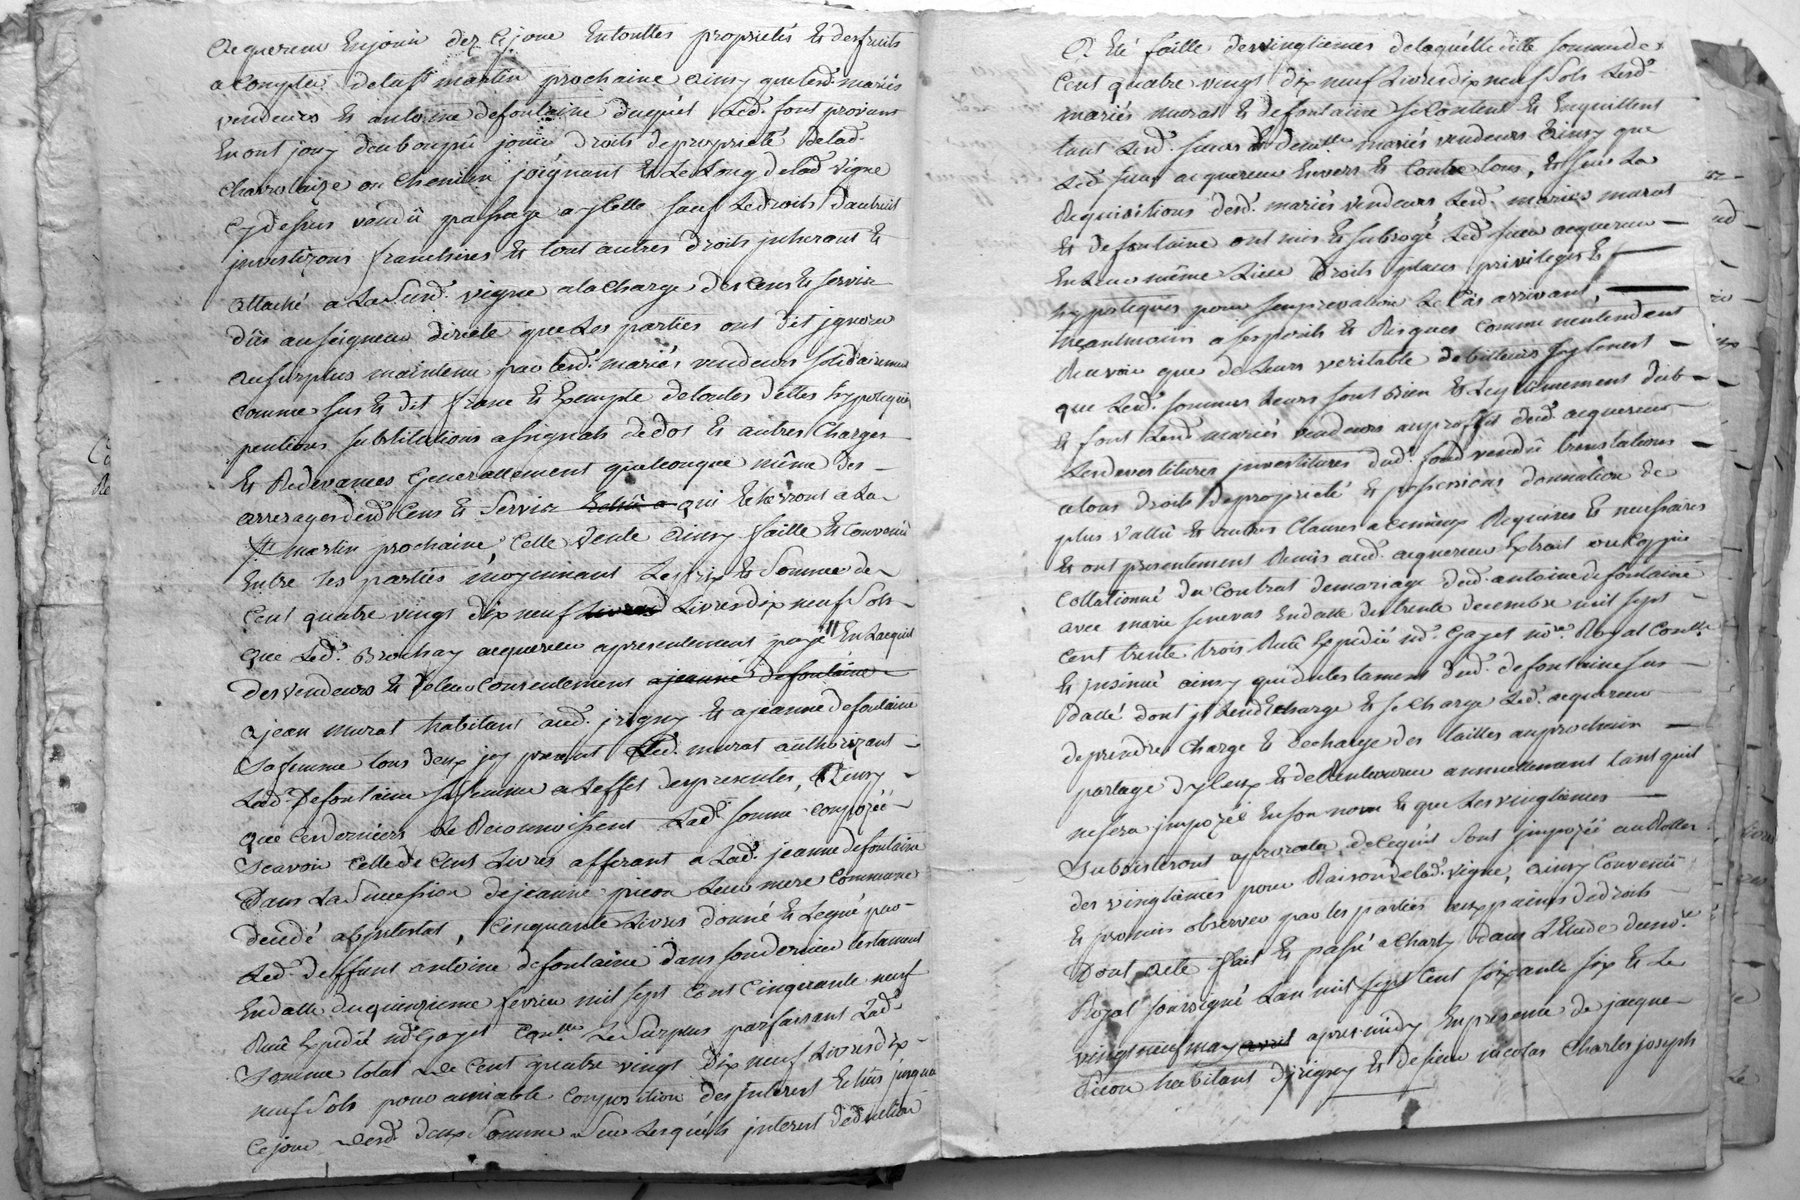 acquereur Enjouir dez Cejour Entouttes proprietés Et desfruits
a Compter dela st martin prochaine ainsy que lesd. mariés
vendeurs Et antoine defontaine duquel Led. font provient
En ont jouy deub ou pu jouir droits depropriété delad.
charrolaize ou chemin joignant Et Le Long delad. vigne
Cydessus vendü passage a jcelle sauf Ledroits dautruit
jnvestizons franchises Et tout autres droits jnherant Et
attaché a La susd. vigne ala charge des Cens Et servis
dûs auseigneur directe que Les parties ont dit jgnorer
ausurplus maintenu par lesd. mariés vendeurs solidairement
comme sus Et dit franc Et Exempte detoutes dettes hypoteques
pentions substitutions assignats dedot Et autres Charges
Et Redevances Generallement quelconque même des
arrerages desd. Cens Et Servis qui Echerront a La
st martin prochaine, Cette vente ainsy faitte Et Convenü
Entre Les parties moyennant Leprix Et Somme de
Cent quatre vingt dix neuf Livres dix neuf Sols
que Led. Brochay acquereur apresentement payé En Lacquit
des vendeurs Et deleur Consentement a jeanne defontaine
a jean murat habitant aud. jrigny Et a jeanne defontaine
sa femme tous deux jcy present Led. murat authorizant
Lad. defontaine sa femme a Leffet despresentes, Ainsy
que Cesderniers Le Reconnoissent Lad. somme composée
Scavoir Celle de Cent Livres afferant a Lad. jeanne defontaine
Dans La Succession dejeanne picon Leur mere Commune
decedé abjntestat, Cinquante Livres donné Et Legué par
Led. deffunt antoine defontaine dans son dernier testament
Endatte du quinzieme fevrier mil sept Cent Cinquante neuf
Recû Expedié md. Gayet Conlle. Le Surplus parfaisant Lad.
Somme total de Cent quatre vingt dix neuf Livres dix
neuf Sols pour amiable Composition des jnterest Echûs jusqua
Cejour desd. deux Somme Sur Lesquels jnterest déduction
A Eté faitte desvingtiemes delaquelle ditte somme de
Cent quatre vingt dix neuf Livres dix neuf Sols Lesd.
mariés murat Et defontaine se Contente Et Enquittent
tant Lesd. mariés vendeurs Ainsy que
Led. sieur acquereur Envers Et Contre tous, Et sur La
Requisitions desd. mariés vendeurs Lesd. mariés murat
Et defontaine ont mis Et subrogé Led. sieur acquereur
En Leur même Lieu droits places privileges Et
hypoteques pour sen prevaloir Le Cas arrivant
Neantmoins a ses perils Et Risques Comme nentendent
Recevoir que de Leurs veritable debitteurs
que Lesd. sommes Leurs sont Bien Et Legitimement deub
Et font Lesd. mariés vendeurs auproffit dud. acquereur
Lesdevestitures jnvestitures dud. fond vendü translations
a tous droits depropriété Et possessions donnation de
plus vallû Et autres Clauses a cemieux Requises Et necessaires
Et ont presentement Remis aud. acquereur Extrait ou Coppie
Collationné du Contrat demariage dud. antoine defontaine
avec marie senevas Endatte du trente decembre mil sept
cent trente trois Recû Expedié md. Gayet nore. Royal Conlle.
Et jnsinué ainsy que du testament dud. defontaine sus
datté dont jl Lendecharge Et se Charge Led. acquereur
deprendre Charge Et decharge des tailles auprochain
partage Et de annuellement tant quil
nesera jmpozée En son nom Et que Lesvingtiemes
Subsisteront aprorata delequit sont jmpozée auRolles
des vingtiemes pour Raison delad. vigne, ainsy Convenü
Et promis observer par les parties aux peines dedroits
Dont acte fait Et passé a Charly dans LEtude dunore.
Royal soussigné Lan mil sept Cent soixante six Et Le
vingt neuf may avril apresmidy En presence de jacque
Picon habitant djrigny Et de sieur nicolas Charles joseph